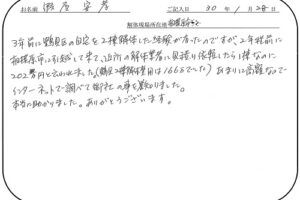 お名前 渡辺安孝
ご記入日 30年1月28日
解体現場所在地
3年前に鶴見区の自宅を2棟解体した経験が有ったのですが、2年程前に
相模原市に引越して来て、近所の解体業者に見積り依頼したら1棟なのに
202万円と云われました(鶴見2棟解体費用は166万でした)あまりに高額なので
インターネットで調べて御社の事を知りました。
本当に助かりました。ありがとうございます。